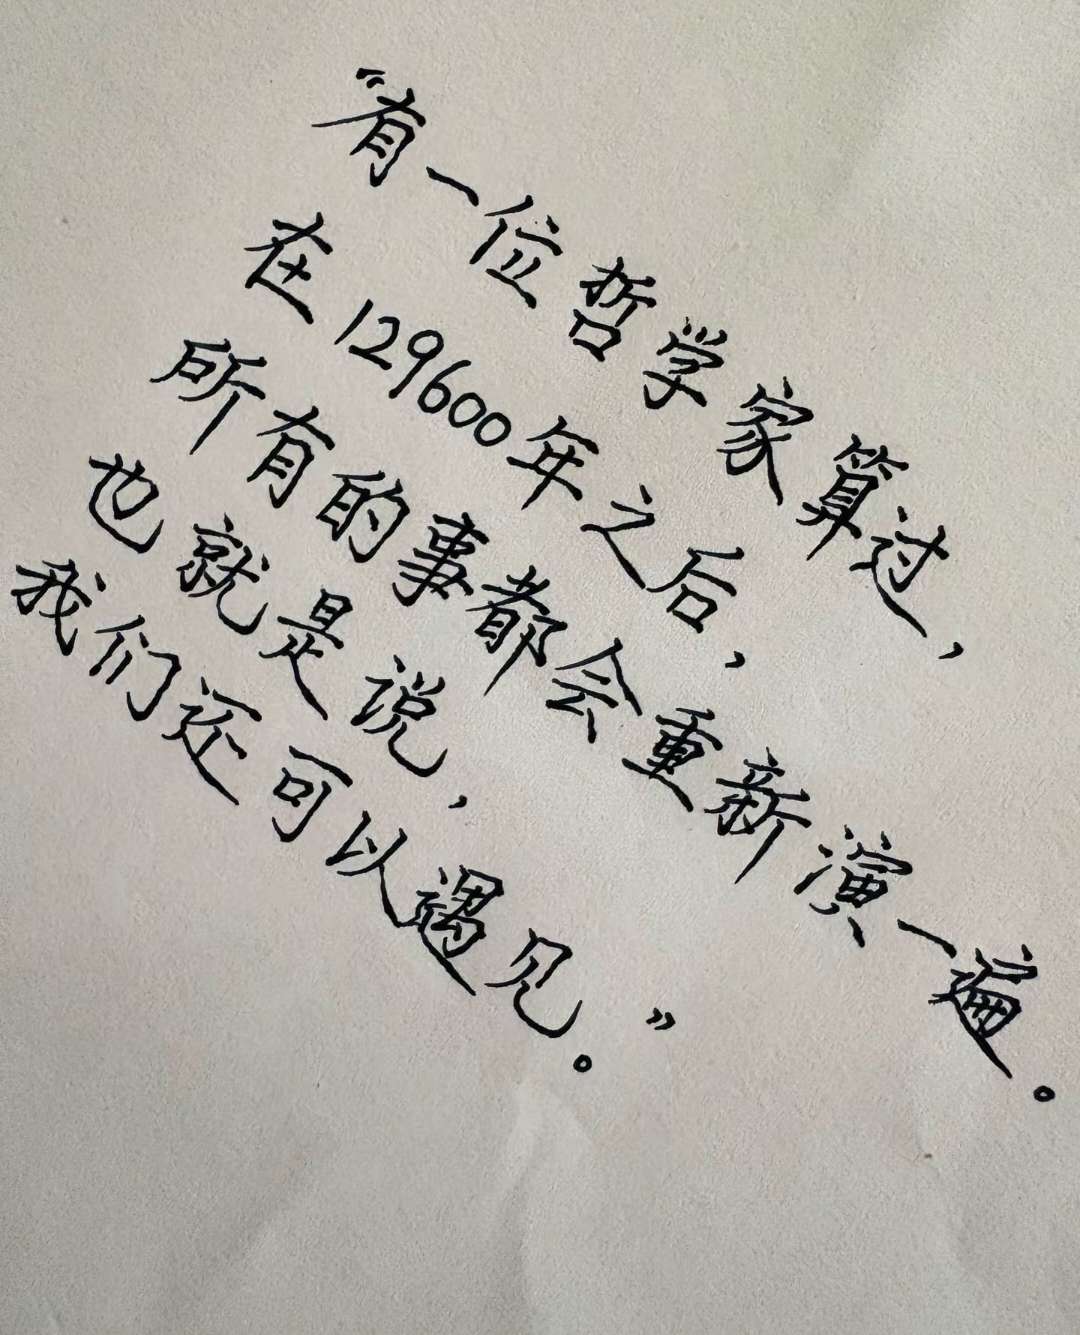 “有一位哲学家算过，
在129600年之后，
所有的事都会重新演一遍。
也就是说，
我们还可以遇见。”